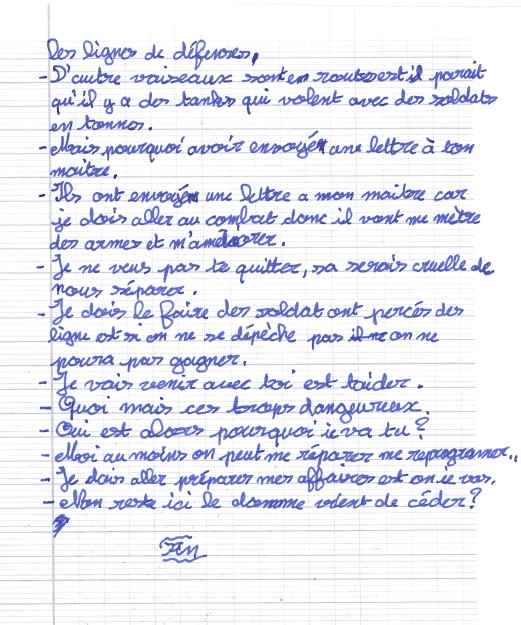 les lignes de défenses,
- D'autre vaiseaux sont en routes est il parait
qu'il y a des tanks qui volent avec des soldats
en tonnos.
- Mais pourquoi avoir envoyés une lettre à ton
maitre.
- Ils ont envoyés une lettre a mon maitre car
je dois aller au combrat donc il vont me mètre
des armes et m'améliorer.
- Je ne veus pas te quitter, sa serais cruelle de
nous séparer.
- Je dois le faire des soldat ont percés des
ligne est si on ne se dépèche pas on ne
poura pas gagner.
- Je vais venir avec toi est taider.
- Quoi mais ces trops dangeureux.
- Oui est alors pourquoi ie va tu ?
- Moi au moins on peut me réparer me reprogramer..
- Je dois aller préparer mes affaires est on ie vas.
- Non reste ici le domme vient de céder ?
Fin